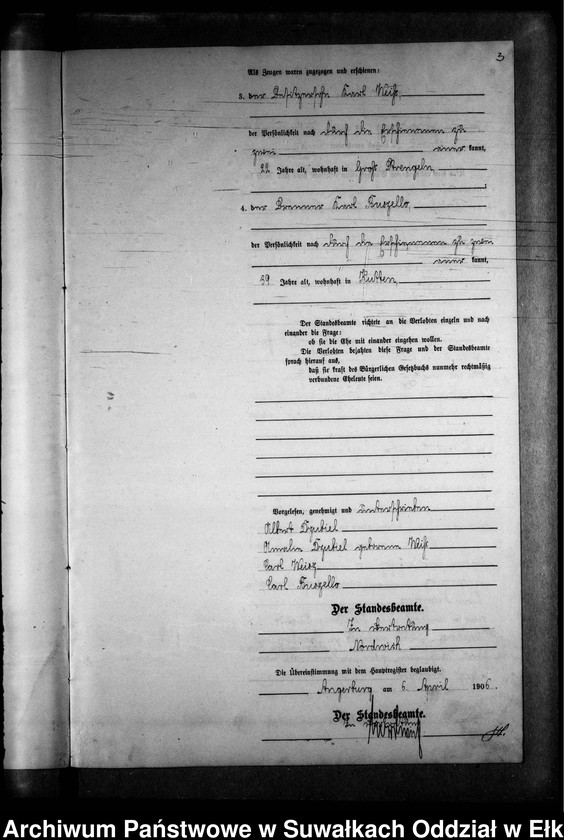 3
Als Zeugen waren zugezogen und erschienen:
3. der Besitzersohn Karl Weiß
der Persönlichkeit nach durch die Erschienenen zu
zwei aner kannt,
22 Jahre alt, wohnhaft in Groß Strengeln
4. der Brenner Karl Kuszello,
der Persönlichkeit nach durch die Erschienenen zu zwei
aner kannt,
39 Jahre alt, wohnhaft in Kutten,
Der Standesbeamte richtete an die Verlobten einzeln und nach
einander die Frage:
ob sie die Ehe mit einander eingehen wollen.
Die Verlobten bejahten diese Frage und der Standesbeamte
sprach hierauf aus,
daß sie kraft des Bürgerlichen Gesetzbuchs nunmehr rechtmäßig
verbundene Eheleute seien.
Vorgelesen, genehmigt und unterschrieben
Albert
Amalie geborene Weiß
Carl Weisz
Carl Kuszello
Der Standesbeamte.
In Vertretung
Nordwich
Die Übereinstimmung mit dem Hauptregister beglaubigt.
Angerburg am 6. April 1906.
Der Standesbeamte.
In
Archiwum Państwowe w Suwałkach Oddział w Ełk